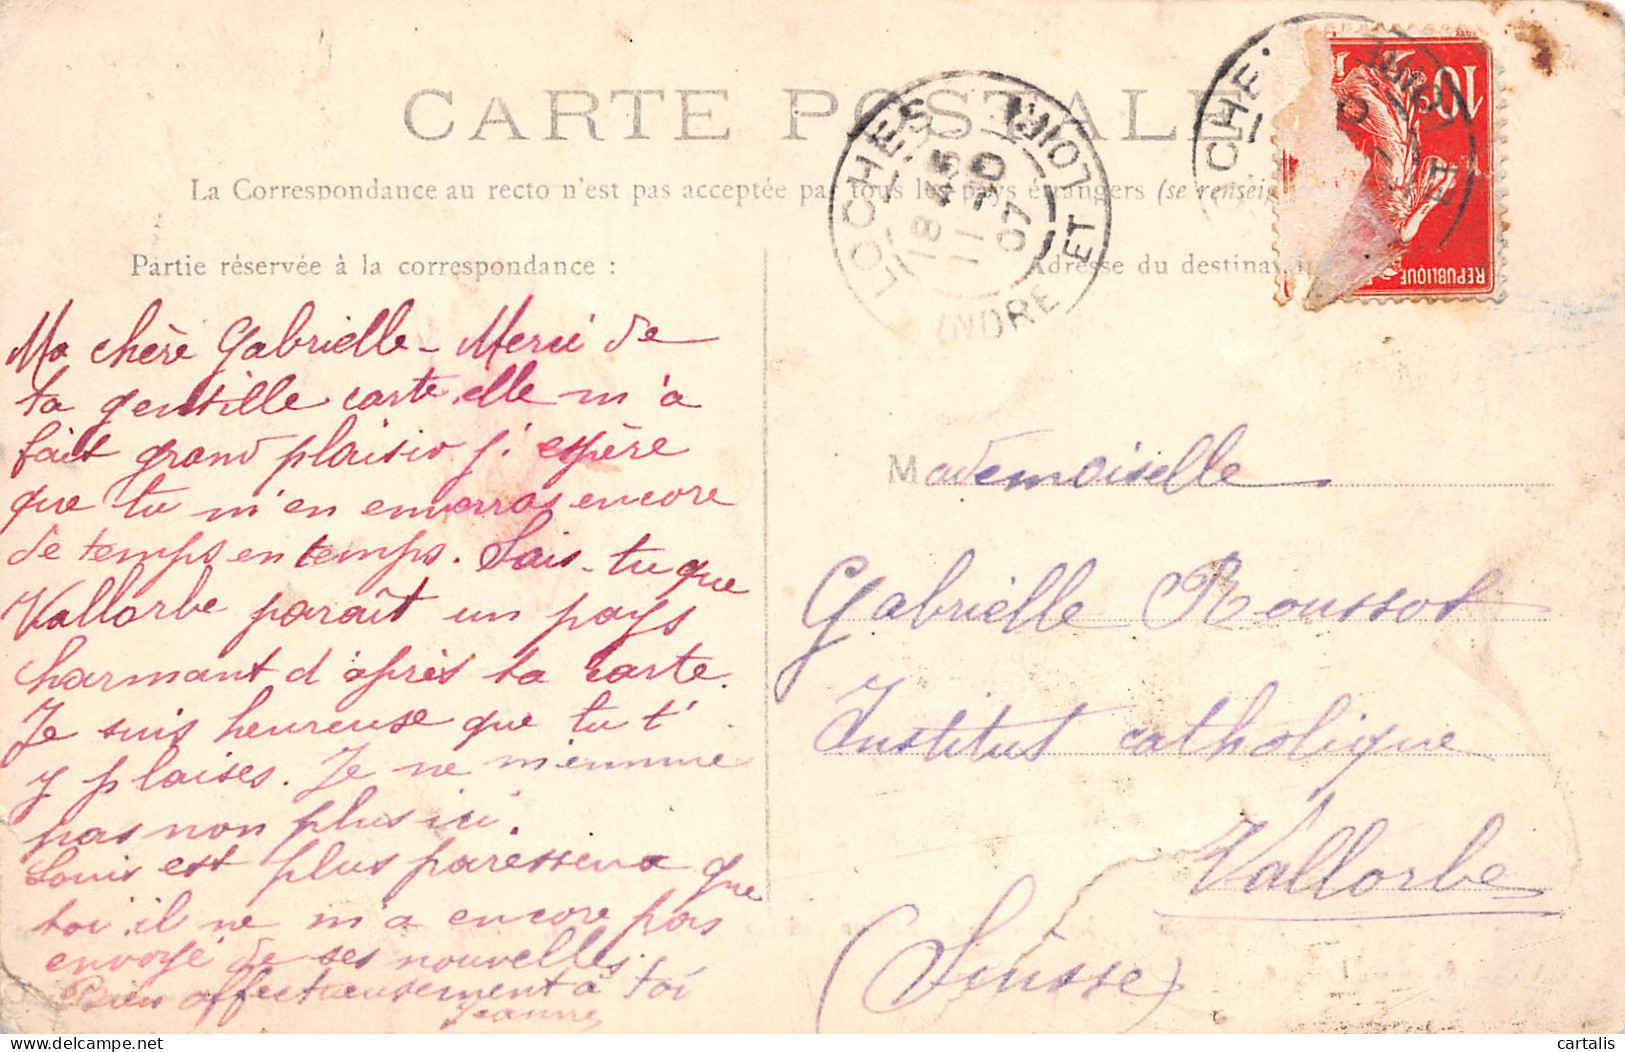 CARTE POSTALE
La Correspondance au recto n'est pas acceptée par tous les pays étrangers (se renseig
Partie réservée à la correspondance :
Adresse du destina
LOCHES
INDRE ET LOIRE
18 45
11 - 10
07
OCHE
10c
REPUBLIQUE
Ma chère Gabrielle - Merci de
ta gentille carte, elle m'a
fait grand plaisir j'espère
que tu m'en enverras encore
de temps en temps. Sais-tu que
Vallorbe paraît un pays
charmant d'après ta carte.
Je suis heureuse que tu t'
y plaises. Je ne m'ennuie
pas non plus ici.
Louis est plus paresseux que
toi, il ne m'a encore pas
envoyé de ses nouvelles.
Bien affectueusement à toi
Jeanne
Mademoiselle
Gabrielle Roussot
Institut catholique
Vallorbe
(Suisse)
cartalis